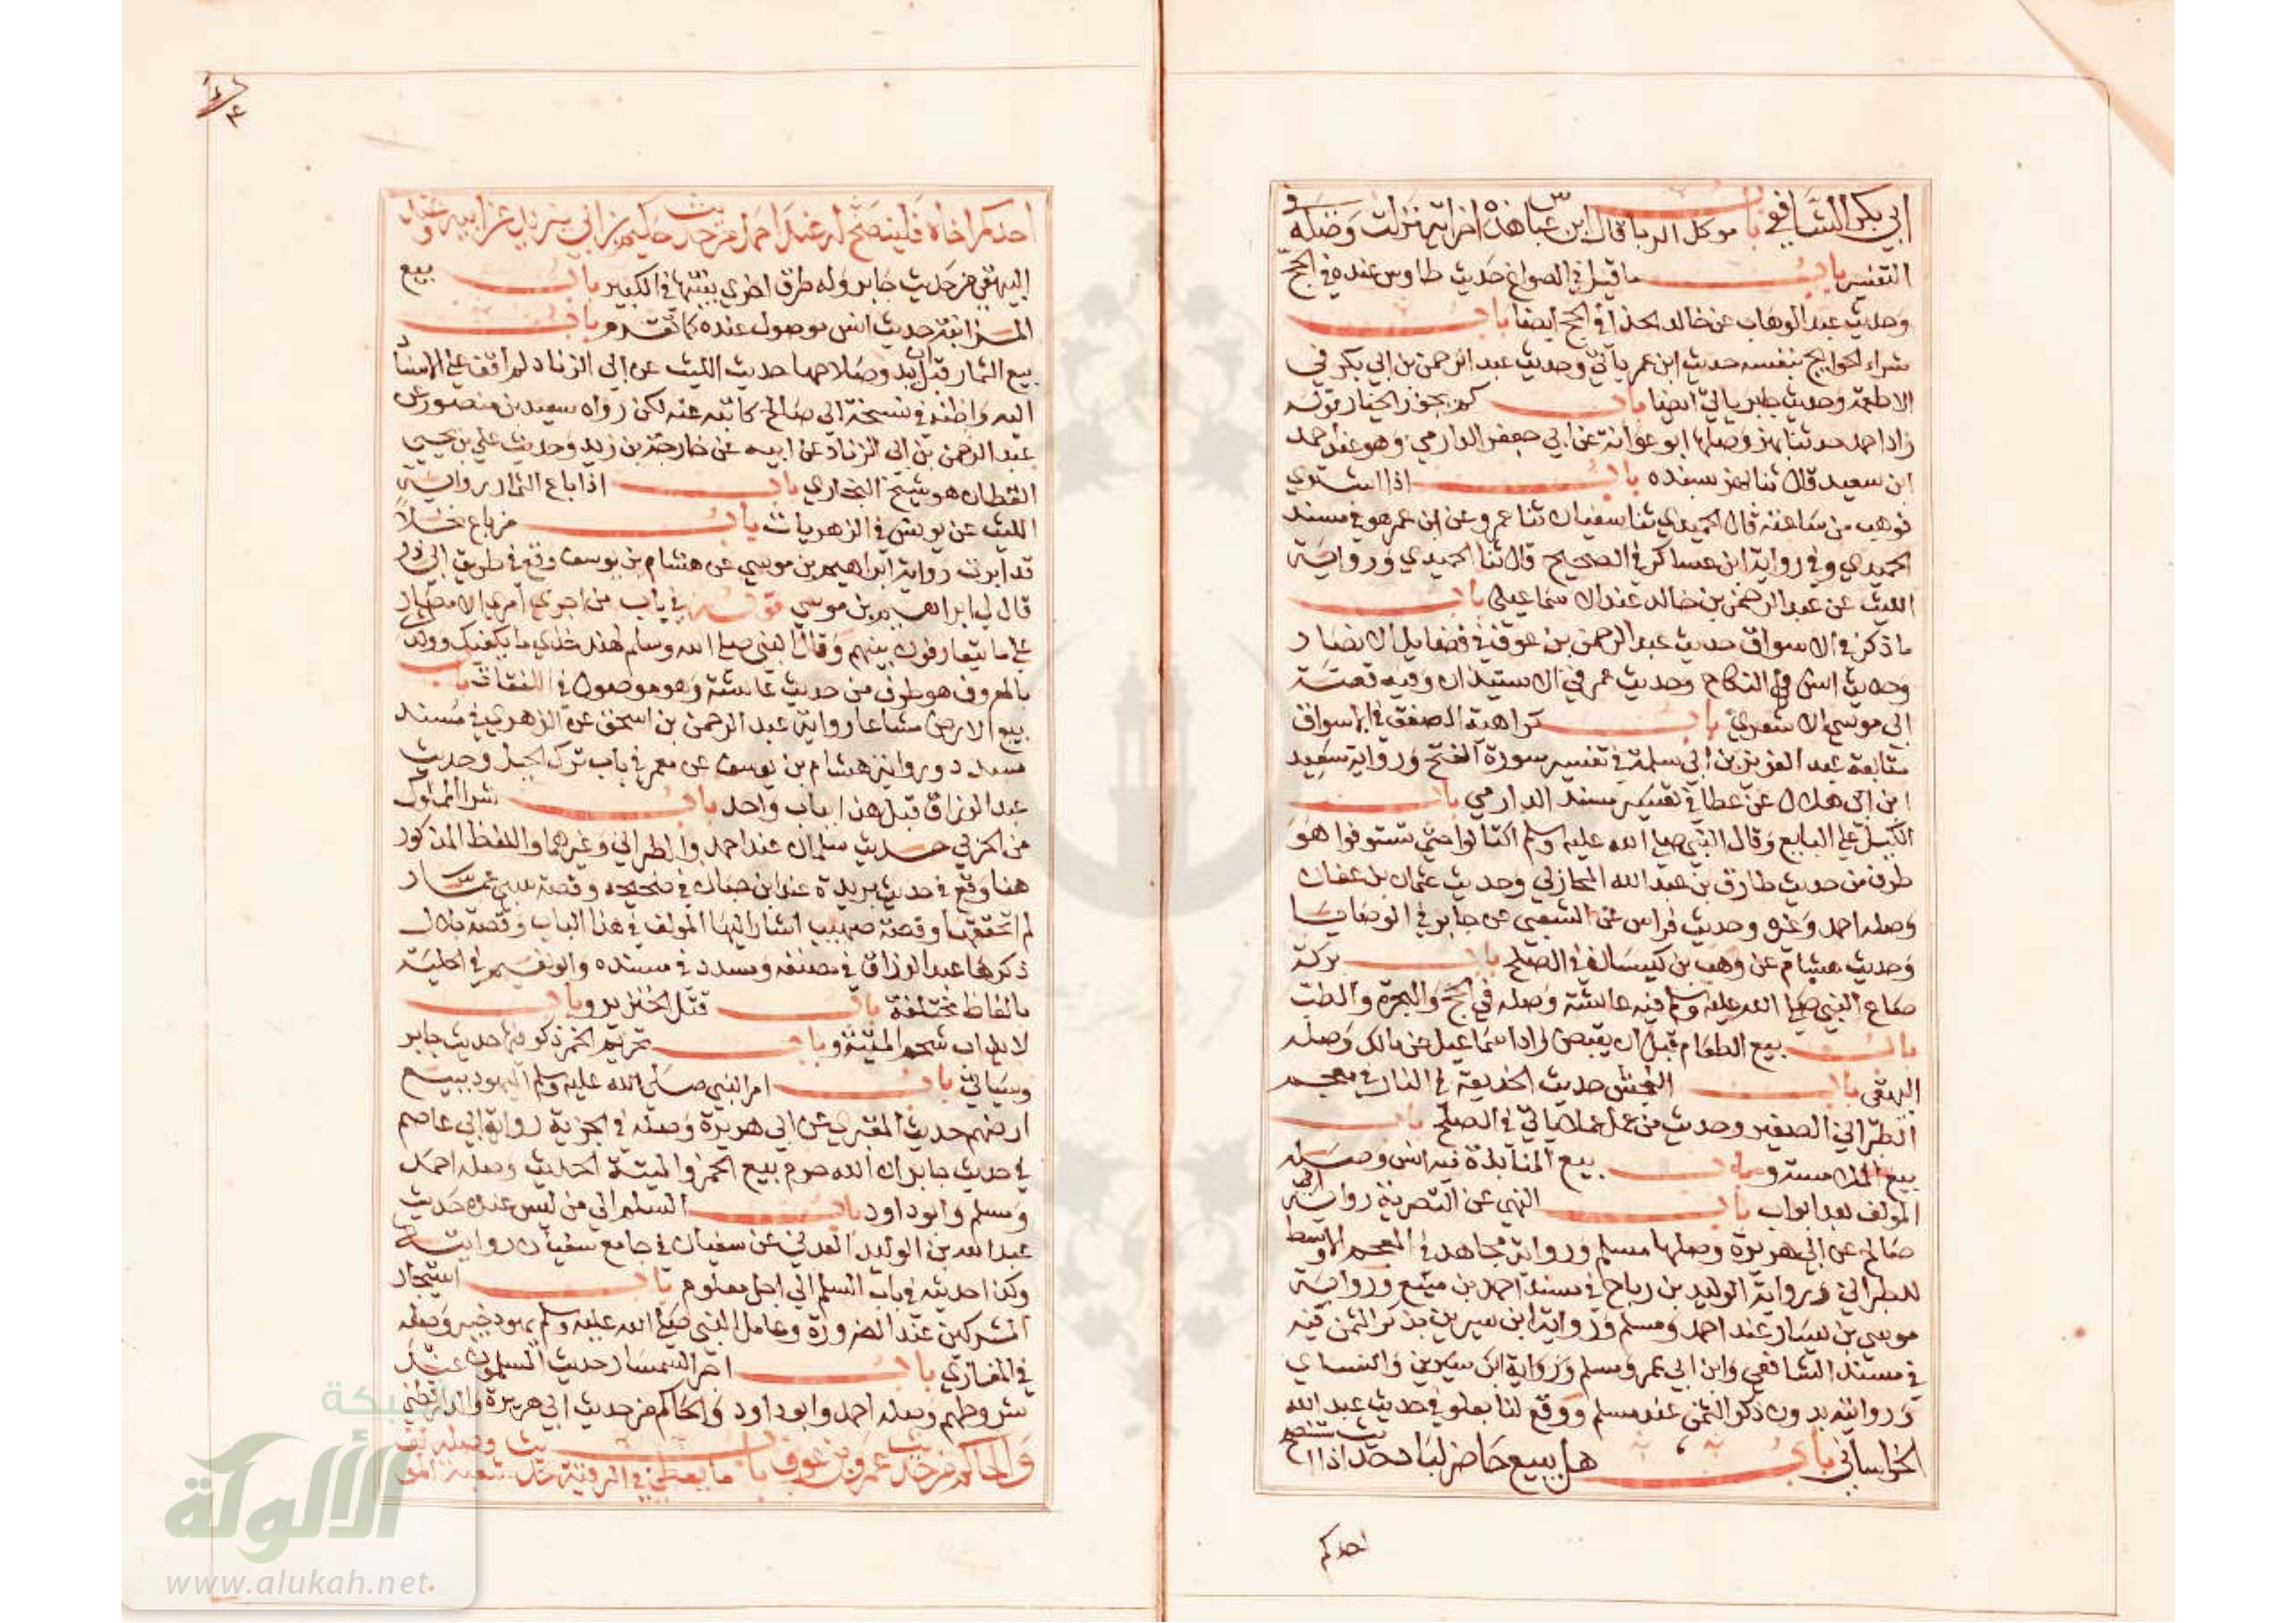 ابي بكر الشافعي باب موكل الربا قال ابن عباس هذه اخر اية نزلت وصله في
التفسير باب ما قيل في الصواغ حديث طاوس عنده في الحج
وحديث عبد الوهاب عن خالد الحذا في الحج ايضا باب
شراء الحوايج بنفسه حديث ابن عمر ياتي وحديث عبد الرحمن بن ابي بكر في
الاطعمة وحديث جابر ياتي ايضا باب كم يجوز الخيار قوله
زاد احمد حدثنا بهز وصلها ابو عوانة عن ابي جعفر الدارمي وهو عند احمد
ابن سعيد قال ثنا بهز بسنده باب اذا اشترى
فوهب من ساعته قال الحميدي ثنا سفيان ثنا عمرو عن ابن عمر هو في مسند
الحميدي وفي رواية ابن عساكر في الصحيح قال ثنا الحميدي ورواية
الليث عن عبد الرحمن بن خالد عند الاسماعيلي باب
ما ذكر في الاسواق حديث عبد الرحمن بن عوف في فضايل الانصار
وحديث انس في النكاح وحديث عمر في الاستيذان وفيه قصة
ابي موسى الاشعري باب كراهة الصفق في الاسواق
متابعة عبد العزيز بن ابي سلمة في تفسير سورة الفتح ورواية سعيد
ابن ابي هلال عن عطا في تفسير مسند الدارمي باب
الكيل على البايع وقال النبي صلى الله عليه وسلم اكتالوا حتى تستوفوا هو
طرف من حديث طارق بن عبد الله المحازلي وحديث عثمان بن عفان
وصله احمد وغيره وحديث فراس عن الشعبي عن جابر في الوصايا
وحديث هشام عن وهب بن كيسان في الصلح باب بركة
صاع النبي صلى الله عليه وسلم فيه عائشة وصله في الحج والهجرة والطب
باب بيع الطعام قبل ان يقبض زاد اسماعيل عن مالك وصله
البيهقي باب النجش حديث الخديعة في النار في معجم
الطبراني الصغير وحديث من عمل عملا ياتي في الصلح باب
بيع الملامسة وباب بيع المنابذة فيه انس وصله
المؤلف بعد ابواب باب النهي عن التصرية رواية ابي
صالح عن ابي هريرة وصلها مسلم ورواية مجاهد في المعجم الاوسط
للطبراني ورواية الوليد بن رباح في مسند احمد بن منيع ورواية
موسى بن يسار عند احمد ومسلم ورواية ابن سيرين بذكر الثمن فيه
في مسند الشافعي وابن ابي عمر ومسلم ورواية ابن سيرين والنساي
وروايته بدون ذكر الثمن عند مسلم ووقع لنا بعلو في حديث عبد الله
الخراساني باب هل يبيع حاضر لباد حديث اذا استنصح
احدكم
احدكم اخاه فلينصح له عند احمد من حديث حكيم بن ابي يزيد عن ابيه وعند
البيهقي من حديث جابر وله طرق اخرى بينتها في الكبير باب بيع
المزابنة حديث انس موصول عنده كما تقدم باب
بيع الثمار قبل ان يبدو صلاحها حديث الليث عن ابي الزناد لم اقف على الاسناد
اليه واظنه في نسخة ابي صالح كاتبه عنه لكن رواه سعيد بن منصور عن
عبد الرحمن بن ابي الزناد عن ابيه عن خارجة بن زيد وحديث علي بن يحيى
القطان هو شيخ البخاري باب اذا باع الثمار رواية
الليث عن يونس في الزهريات باب من باع نخلا
قد ابرت رواية ابراهيم بن موسى عن هشام بن يوسف وقع في طريق ابي ذر
قال لي ابراهيم بن موسى قوله في باب من اجرى امر الامصار
على ما يتعارفون بينهم وقال النبي صلى الله وسلم لهند خذي ما يكفيك وولدك
بالمعروف هو طرف من حديث عائشة وهو موصول في النفقات باب
بيع الارض مشاعا رواية عبد الرحمن بن اسحق عن الزهري في مسند
مسدد ورواية هشام بن يوسف عن معمر في باب ترك الحيل وحديث
عبد الرزاق قبل هذا بباب واحد باب شرا المملوك
من الحربي حديث سلمان عند احمد والطبراني وغيرهما واللفظ المذكور
هنا وقع في حديث بريدة عند ابن حبان في صحيحه وقصة سبي عمار
لم اتحققها وقصة صهيب اشار اليها المولف في هذا الباب وقصة بلال
ذكرها عبد الرزاق في مصنفه ومسدد في مسنده وابو نعيم في الحلية
بالفاظ مختلفة باب قتل الخنزير وباب
لا يذاب شحم الميتة وباب تحريم الخمر ذكر فيها حديث جابر
وسياتي باب امر النبي صلى الله عليه وسلم اليهود ببيع
ارضهم حديث المقبري عن ابي هريرة وصله في الجزية رواية ابي عاصم
في حديث جابر ان الله حرم بيع الخمر والميتة الحديث وصله احمد
ومسلم وابو داود باب السلم الى من ليس عنده حديث
عبد الله بن الوليد العدني عن سفيان في جامع سفيان روايته
وكذا حديثه في باب السلم الى اجل معلوم باب استيجار
المشركين عند الضرورة وعامل النبي صلى الله عليه وسلم يهود خيبر وصله
في المغازي باب اجر السمسار حديث المسلمون عند
شروطهم وصله احمد وابو داود والحاكم من حديث ابي هريرة والدارقطني
والحاكم من حديث عمرو بن عوف باب ما يعطى في الرقية حديث شعبة
الألوكة
www.alukah.net